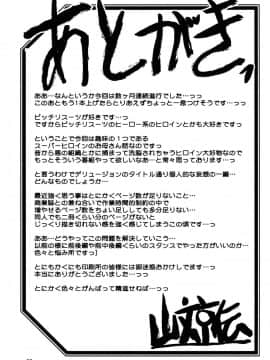 あとがきっ
ああ…なんというか今回は数ヶ月連続進行でした…っっ
このあともう1本上げたらとりあえずちょっと一息つけそうです…っ
ピッチリスーツが好きです…っっ
ですからピッチリスーツのヒーロー系のヒロインとかも大好きです…っっ
ということで今回は趣味の1つである
スーパーヒロインのお母さん物なのですっ
昔から悪の組織とかに捕まって洗脳されちゃうヒロイン大好物なので
もっとそういう番組やって欲しいなあ…と常々思っております…っ
と言うわけでデリュージョンのタイトル通り個人的な妄想の一編…
どんなものでしょうか…っ
最近強く思う事はとにかくページ数が足りないこと…
商業誌との兼ね合いで作業時間的制約の中で
増やせるページ数をちょい足ししても多寡が知れるので…
同人でも二冊くらい分のページがないと
じっくり描き切れない感を強く感じてしまうこの頃です…っ
ああどうやってこの問題を解決していこう…
以前の様に前後編や前中後編くらいのスタンスでやった方がいいのか…
色々と悩み所です…っ
ともかくにも印刷所の皆様には御迷惑おかけしてます…っ
本当にありがとうございました…っっ
とにかく色々とがんばって精進せねば…っっ